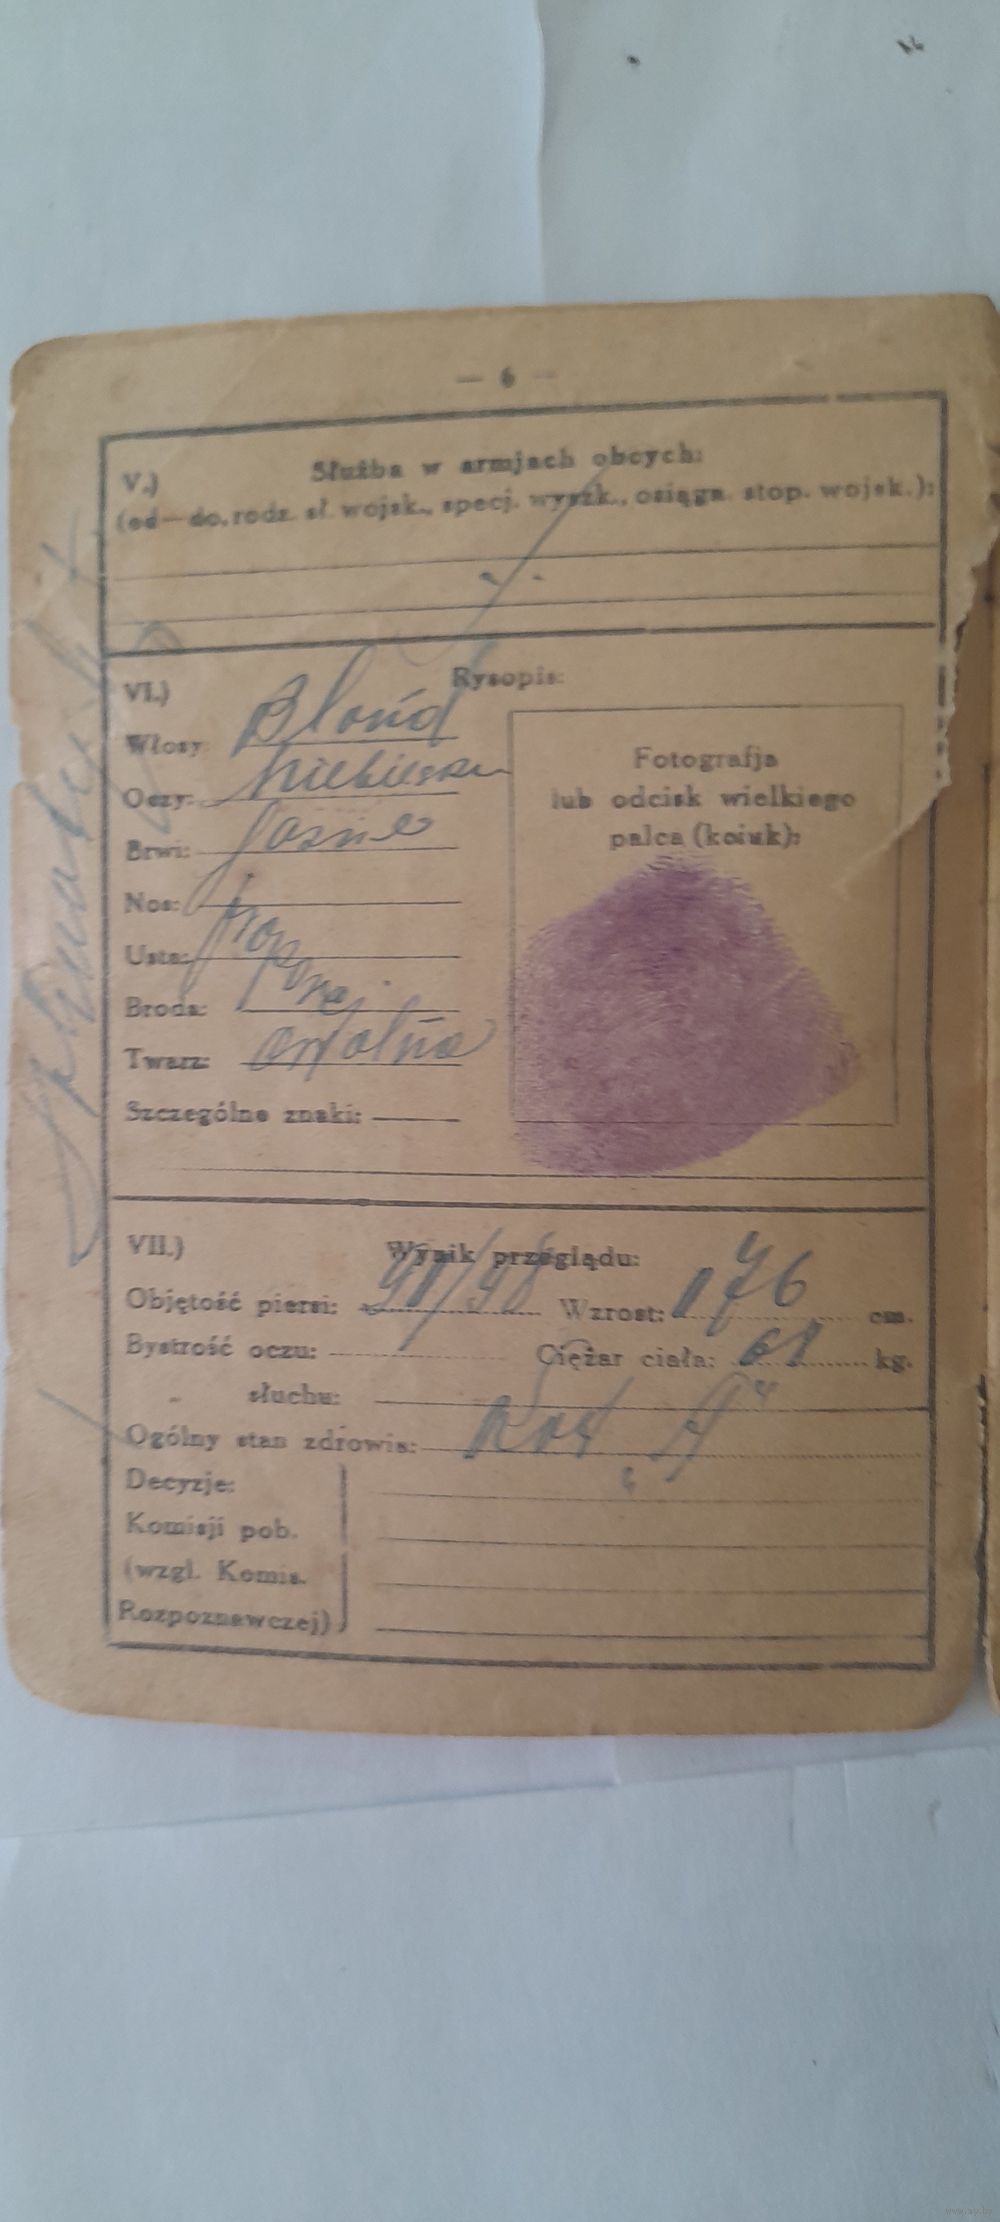 — 6 —
V.) Służba w armjach obcych:
(od—do, rodz. sł. wojsk., specj. wyszk., osiągn. stop. wojsk.):
VI.) Rysopis:
Włosy: Blond
Oczy: niebieskie
Brwi: Jasne
Nos:
Usta: propor.
Broda:
Twarz: owalna
Szczególne znaki:
Fotografja
lub odcisk wielkiego
palca (kciuk):
VII.) Wynik przeglądu:
Objętość piersi: 91/98 Wzrost: 176 cm.
Bystrość oczu: Ciężar ciała: 61 kg.
„ słuchu:
Ogólny stan zdrowia: Kat „A"
Decyzje:
Komisji pob.
(wzgl. Komis.
Rozpoznawczej)